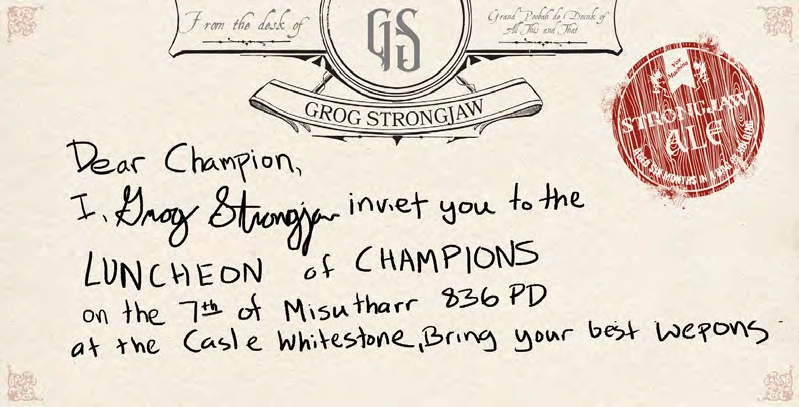 From the desk of
GS
Grand Poobah de Doink of
All This and That
GROG STRONGJAW
Vox
Machina
STRONGJAW
ALE
Dear Champion,
I, Grog Strongjaw inviet you to the
LUNCHEON of CHAMPIONS
on the 7th of Misutharr 836 PD
at the Casle Whitestone, Bring your best wepons